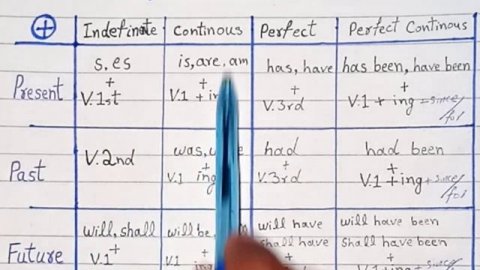 ⊕ Indefinite Continous Perfect Perfect Continous
Present
s.es
+
V.1st
is,are,am
+
V.1 + in
has, have
+
V.3rd
has been, have been
+
V.1 + ing + since/for
Past
V.2nd
was,
+
V.1 ing
had
+
V.3rd
had been
+
V.1 + ing + since/for
Future
will, shall
+
V.1
will be,
+
V.1 ing
will have
shall have
+
V.3rd
will have been
shall have been
+
V.1 + ing + since